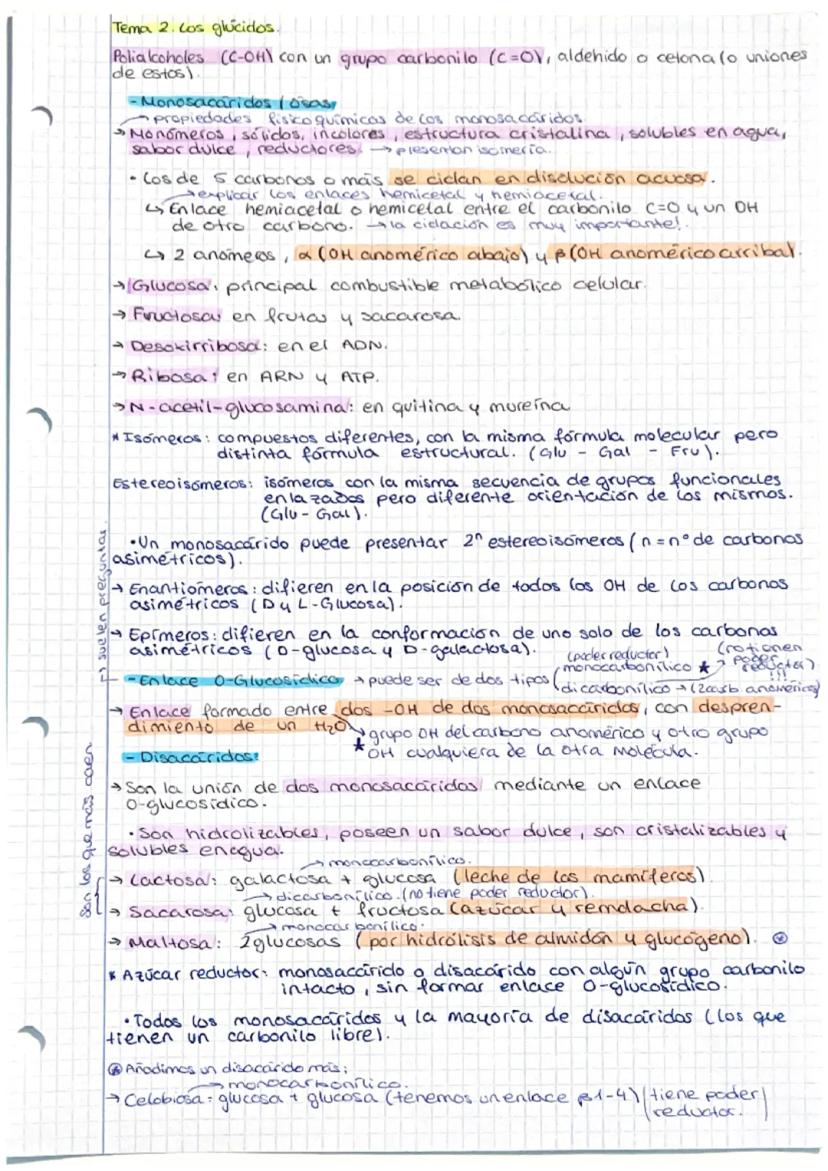 Tema 2. Los glúcidos.
Polialcoholes (C-OH) con un grupo carbonilo (C=O), aldehido o cetona (o uniones
de estos).
- Monosacáridos (osas)
→ propiedades fisicoquímicas de los monosacáridos.
→ Monómeros, sólidos, incoloros, estructura cristalina, solubles en agua,
sabor dulce, reductores. → presentan isomería.
• Los de 5 carbonos o más se ciclan en disolución acuosa.
→ explicar los enlaces hemicetal y hemiacetal.
↳ Enlace hemiacetal o hemicetal entre el carbonilo C=O y un OH
de otro carbono. → la ciclación es muy importante!.
↳ 2 anómeros, α (OH anomérico abajo) y β (OH anomérico arriba).
→ Glucosa: principal combustible metabólico celular.
→ Fructosa: en frutas y sacarosa.
→ Desoxirribosa: en el ADN.
→ Ribosa: en ARN y ATP.
→ N-acetil-glucosamina: en quitina y mureína
* Isómeros: compuestos diferentes, con la misma fórmula molecular pero
distinta fórmula estructural. (Glu - Gal - Fru).
Estereoisómeros: isómeros con la misma secuencia de grupos funcionales
enlazados pero diferente orientación de los mismos.
(Glu - Gal).
• Un monosacárido puede presentar 2ⁿ estereoisómeros (n = nº de carbonos
asimétricos).
→ Enantiómeros: difieren en la posición de todos los OH de los carbonos
asimétricos (D y L-Glucosa).
→ Epímeros: difieren en la conformación de uno solo de los carbonos
asimétricos (D-glucosa y D-galactosa).
suelen preguntar.
(poder reductor)
(no tienen
poder
reductor)
!!!
- Enlace O-Glucosídico → puede ser de dos tipos (monocarbonílico ★
dicarbonílico → (2 carb anoméricos)
→ Enlace formado entre dos -OH de dos monosacáridos, con despren-
dimiento de un H₂O
★ grupo OH del carbono anomérico y otro grupo
OH cualquiera de la otra molécula.
- Disacáridos:
→ Son la unión de dos monosacáridos mediante un enlace
O-glucosídico.
• Son hidrolizables, poseen un sabor dulce, son cristalizables y
solubles en agua.
son los que más caen
→ monocarbonílico.
→ Lactosa: galactosa + glucosa (leche de los mamíferos).
→ dicarbonílico. (no tiene poder reductor).
→ Sacarosa: glucosa + fructosa (azúcar y remolacha).
→ monocarbonílico.
→ Maltosa: 2 glucosas (por hidrólisis de almidón y glucógeno). ⊛
* Azúcar reductor: monosacárido o disacárido con algún grupo carbonilo
intacto, sin formar enlace O-glucosídico.
• Todos los monosacáridos y la mayoría de disacáridos (los que
tienen un carbonilo libre).
⊛ Añadimos un disacárido más:
→ monocarbonílico.
→ Celobiosa: glucosa + glucosa (tenemos un enlace β1-4) (tiene poder
reductor.)